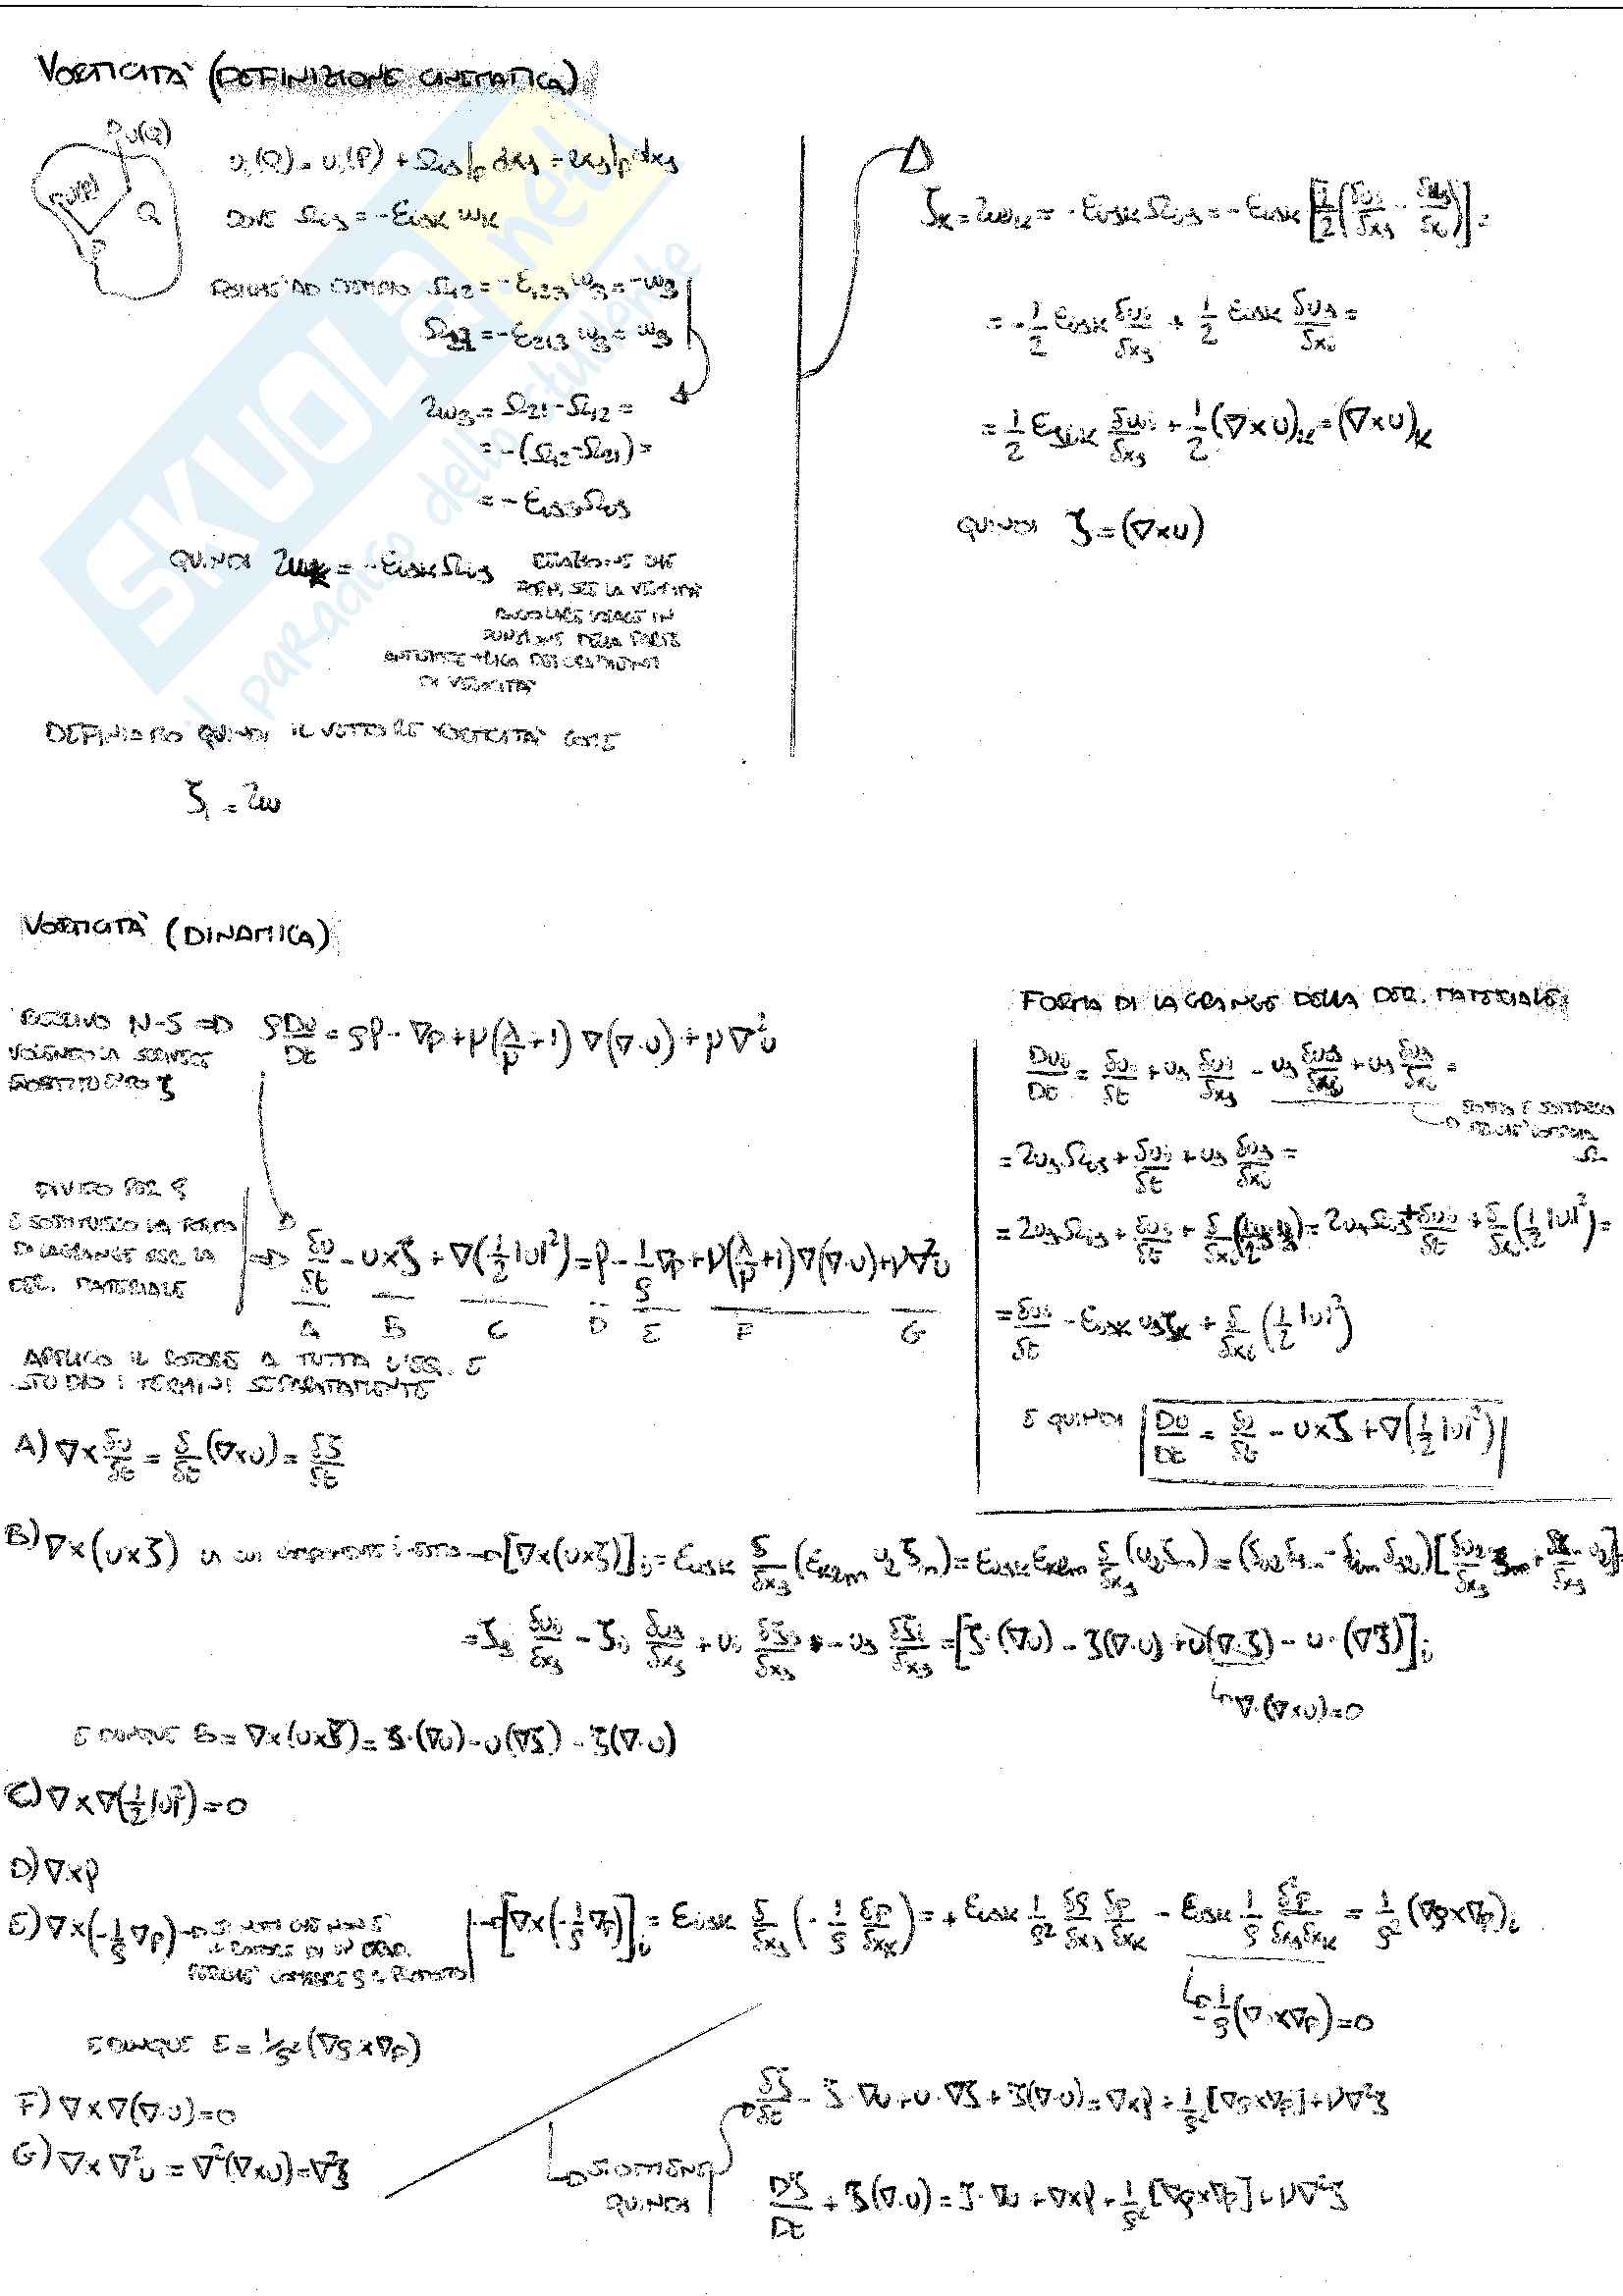 VORTICITÀ (DEFINIZIONE CINEMATICA)
u(Q)
u(P)
Q
P
uᵢ(Q) = uᵢ(P) + Ωᵢⱼ|ₚ dxⱼ + eᵢⱼ|ₚ dxⱼ
DOVE Ωᵢⱼ = -εᵢⱼₖ ωₖ
AD ESEMPIO Ω₁₂ = -ε₁₂₃ ω₃ = -ω₃
Ω₂₁ = -ε₂₁₃ ω₃ = ω₃
2ω₃ = Ω₂₁ - Ω₁₂ =
= -(Ω₁₂ - Ω₂₁) =
= -εᵢⱼ₃Ωᵢⱼ
QUINDI 2ωₖ = -εᵢⱼₖΩᵢⱼ
DELLA PARTE
DI VELOCITÀ
DEFINIAMO QUINDI IL VETTORE VORTICITÀ COME
ζ = 2ω
ζₖ = 2ωₖ = -εᵢⱼₖΩᵢⱼ = -εᵢⱼₖ[1/2(δuᵢ/δxⱼ - δuⱼ/δxᵢ)] =
= -1/2 εᵢⱼₖ δuᵢ/δxⱼ + 1/2 εᵢⱼₖ δuⱼ/δxᵢ =
= 1/2 εⱼᵢₖ δuᵢ/δxⱼ + 1/2(∇×u)ₖ = (∇×u)ₖ
QUINDI ζ = (∇×u)
VORTICITÀ (DINAMICA)
N-S ⇒ ρDu/Dt = ρf - ∇p + μ(λ/μ+1)∇(∇·u) + μ∇²u
DIVIDO PER ρ
E SOSTITUISCO LA FORMA
DI LAGRANGE PER LA
DER. MATERIALE
⇒ δu/δt - u×ζ + ∇(1/2|u|²) = f - 1/ρ ∇p + ν(λ/μ+1)∇(∇·u) + ν∇²u
A B C D E F G
APPLICO IL ROTORE A TUTTA L'EQ. E
STUDIO I TERMINI SEPARATAMENTE
FORMA DI LAGRANGE DELLA DER. MATERIALE
Duᵢ/Dt = δuᵢ/δt + uⱼ δuᵢ/δxⱼ - uⱼ δuⱼ/δxᵢ + uⱼ δuⱼ/δxᵢ =
= 2uⱼΩᵢⱼ + δuᵢ/δt + uⱼ δuⱼ/δxᵢ =
= 2uⱼΩᵢⱼ + δuᵢ/δt + δ/δxᵢ(1/2 uⱼuⱼ) = 2uⱼΩᵢⱼ + δuᵢ/δt + δ/δxᵢ(1/2|u|²) =
= δuᵢ/δt - εᵢⱼₖ uⱼζₖ + δ/δxᵢ(1/2|u|²)
E QUINDI Du/Dt = δu/δt - u×ζ + ∇(1/2|u|²)
A) ∇×δu/δt = δ/δt(∇×u) = δζ/δt
B) ∇×(u×ζ) LA CUI COMPONENTE i-ESIMA → [∇×(u×ζ)]ᵢ = εᵢⱼₖ δ/δxⱼ(εₖₗₘ uₗζₘ) = εᵢⱼₖεₖₗₘ δ/δxⱼ(uₗζₘ) = (δᵢₗδⱼₘ - δᵢₘδⱼₗ)[δuₗ/δxⱼ ζₘ + δζₘ/δxⱼ uₗ]
= ζⱼ δuᵢ/δxⱼ - ζᵢ δuⱼ/δxⱼ + uᵢ δζⱼ/δxⱼ - uⱼ δζᵢ/δxⱼ = [ζ·(∇u) - ζ(∇·u) + u(∇·ζ) - u·(∇ζ)]ᵢ
∇·(∇×u)=0
E DUNQUE B = ∇×(u×ζ) = ζ·(∇u) - u(∇ζ) - ζ(∇·u)
C) ∇×∇(1/2|u|²) = 0
D) ∇×f
E) ∇×(-1/ρ ∇p) → → [∇×(-1/ρ ∇p)]ᵢ = εᵢⱼₖ δ/δxⱼ(-1/ρ δp/δxₖ) = +εᵢⱼₖ 1/ρ² δρ/δxⱼ δp/δxₖ - εᵢⱼₖ 1/ρ δ²p/δxⱼδxₖ = 1/ρ²(∇ρ×∇p)ᵢ
-1/ρ(∇×∇p)=0
E DUNQUE E = 1/ρ²(∇ρ×∇p)
F) ∇×∇(∇·u)=0
G) ∇×∇²u = ∇²(∇×u) = ∇²ζ
SI OTTIENE
QUINDI
δζ/δt - ζ·∇u + u·∇ζ + ζ(∇·u) = ∇×f + 1/ρ²[∇ρ×∇p] + ν∇²ζ
Dζ/Dt + ζ(∇·u) = ζ·∇u + ∇×f + 1/ρ²[∇ρ×∇p] + ν∇²ζ
SKUOLA.net
il paradiso dello studente